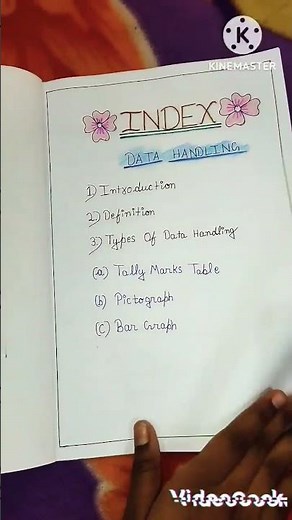 KINEMASTER
INDEX
DATA HANDLING
1) Introduction
2) Definition
3) Types Of Data Handling
(a) Tally Marks Table
(b) Pictograph
(c) Bar Graph
VideoBook